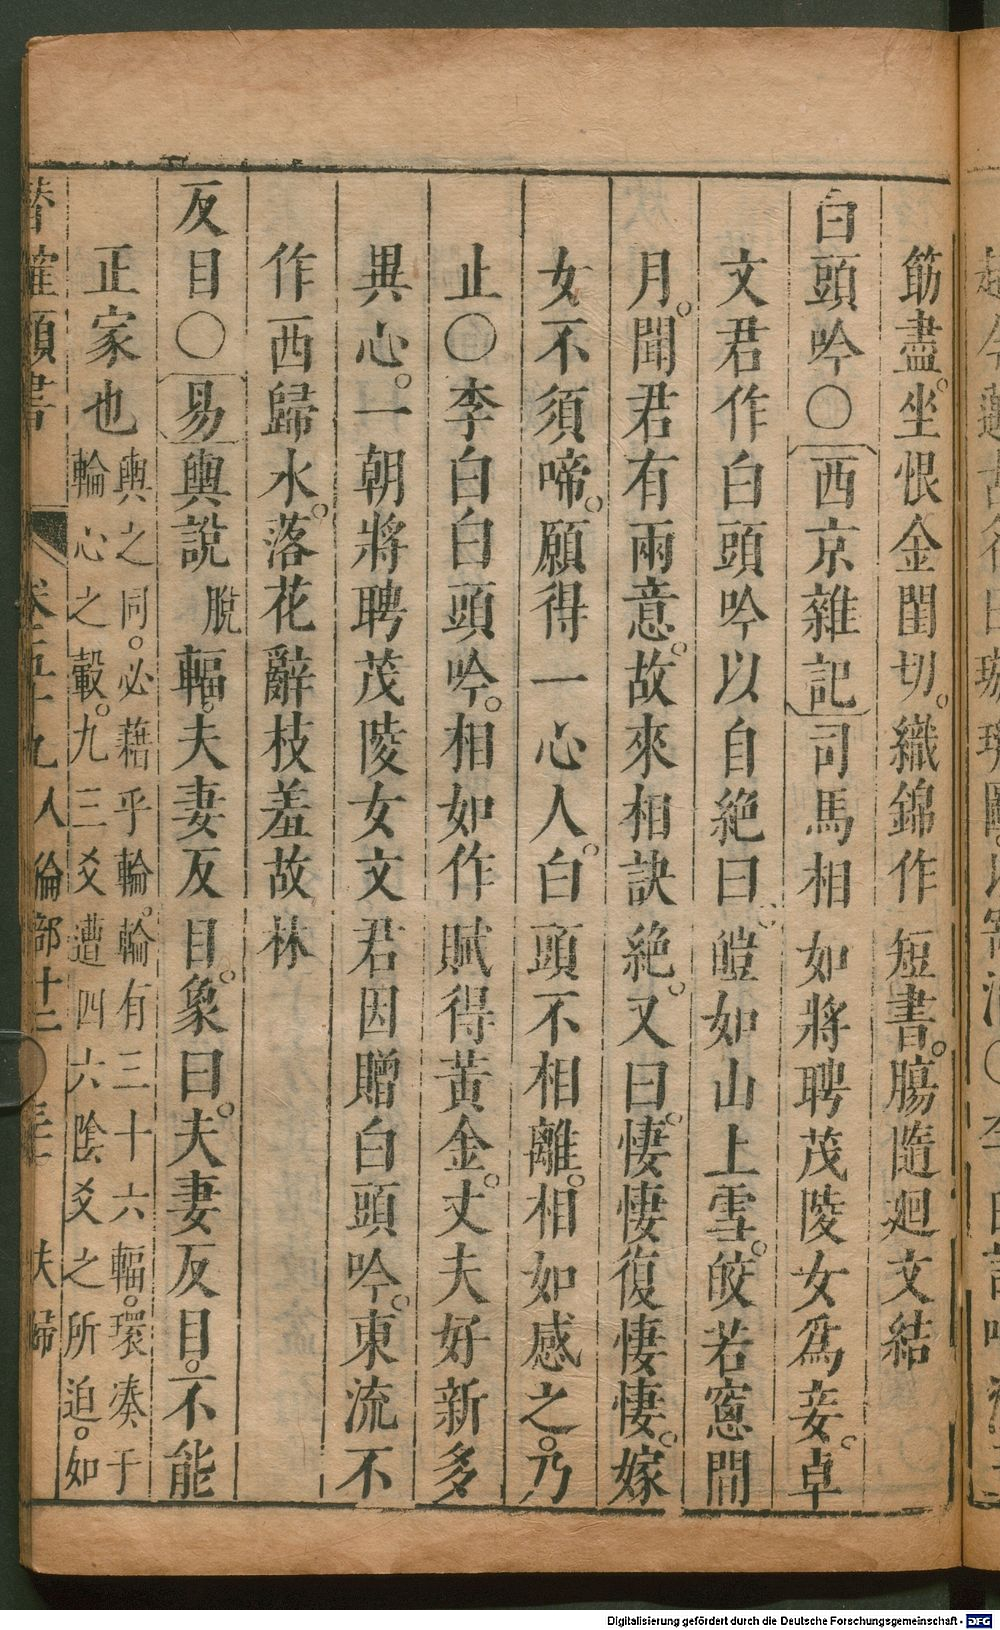 筋盡。坐恨金閨切。織錦作短書。腸隨廻文結
白頭吟○西京雜記司馬相如將聘茂陵女爲妾。卓
文君作白頭吟以自絶曰。皚如山上雪。皎若窻間
月。聞君有兩意。故來相訣絶。又曰。悽悽復悽悽。嫁
女不須啼。願得一心人。白頭不相離。相如感之。乃
止○李白白頭吟。相如作賦得黃金。丈夫好新多
異心。一朝將聘茂陵女文君因贈白頭吟。東流不
作西歸水。落花辭枝羞故林
反目○易輿說脫輻。夫妻反目。象曰。夫妻反目。不能
正家也
輿之同。必藉乎輪。輪有三十六輻。環湊于
輪心之轂。九三爻遭四六陰爻之所迫。如
類書 卷五十九 人倫部十二
Digitalisierung gefördert durch die Deutsche Forschungsgemeinschaft - DFG